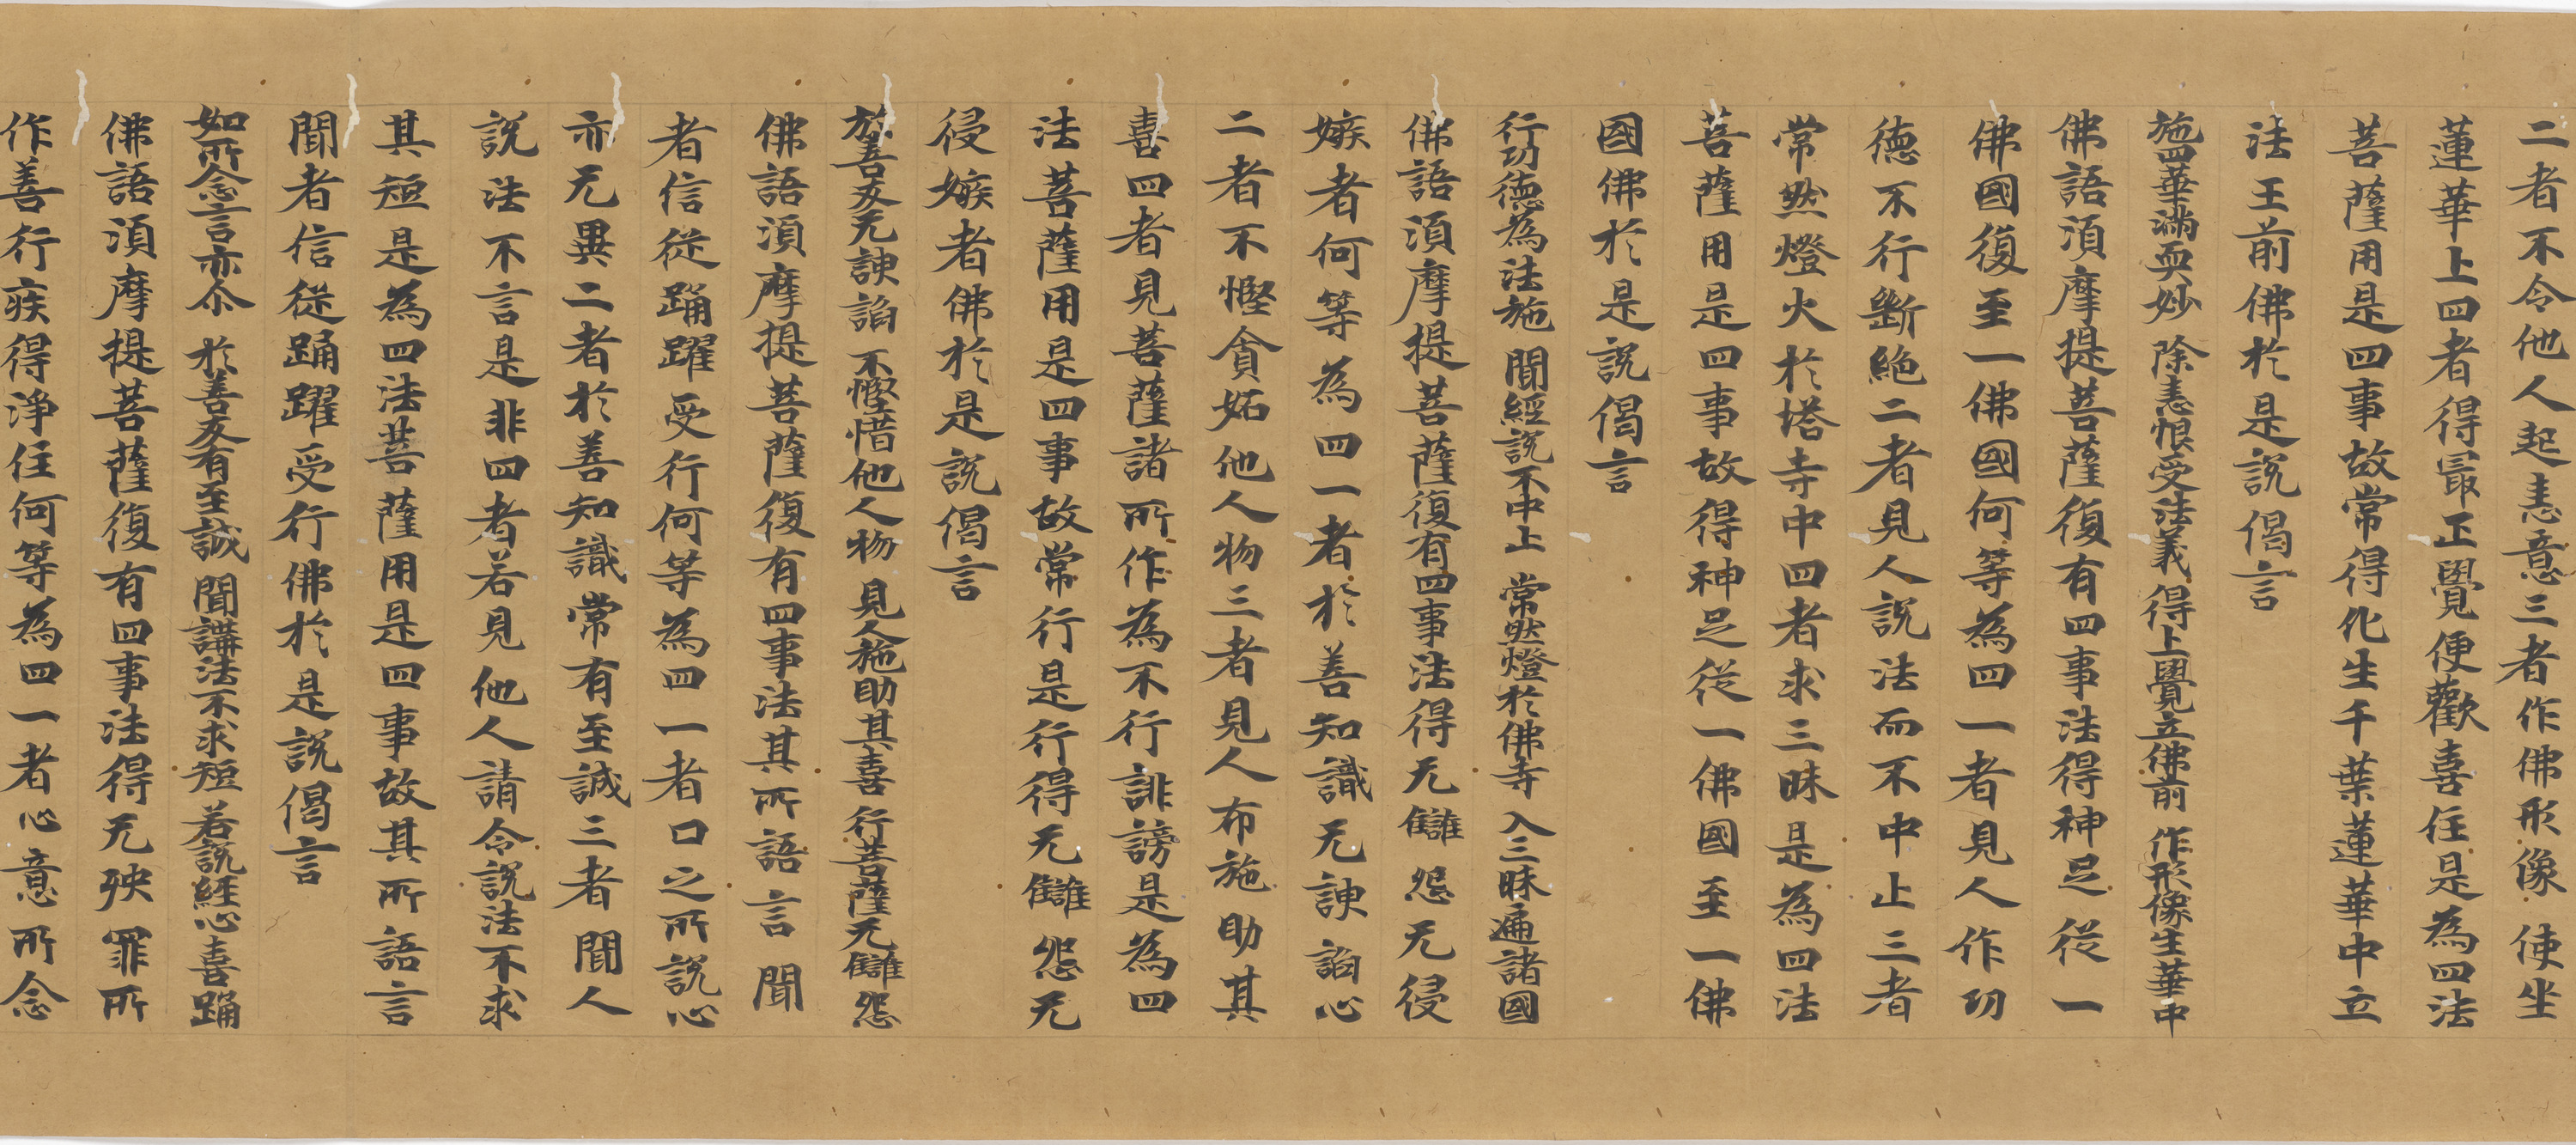 二者不令他人起恚意三者作佛形像使坐
蓮華上四者得最正覺便歡喜住是為四法
菩薩用是四事故常得化生千葉蓮華中立
法王前佛於是說偈言
施四華滿與妙 除恚恨受法義 得上覺立佛前 作形像生華中
佛語湏摩提菩薩復有四事法得神足從一
佛國復至一佛國何等為四一者見人作功
德不行斷絶二者見人說法而不中止三者
常然燈火於塔寺中四者求三昧是為四法
菩薩用是四事故得神足從一佛國至一佛
國佛於是說偈言
行功德為法施 聞經說不中止 常然燈於佛寺 入三昧遍諸國
佛語湏摩提菩薩復有四事法得无讎怨无侵
嫉者何等為四一者於善知識无諛諂心
二者不慳貪妬他人物三者見人布施助其
喜四者見菩薩諸所作為不行誹謗是為四
法菩薩用是四事故常行是行得无讎怨无
侵嫉者佛於是說偈言
於善友无諛諂 不慳惜他人物 見人施助其喜 行菩薩无讎怨
佛語湏摩提菩薩復有四事法其所語言聞
者信從踊躍受行何等為四一者口之所說心
亦无異二者於善知識常有至誠三者聞人
說法不言是非四者若見他人請令說法不求
其短是為四法菩薩用是四事故其所語言
聞者信從踊躍受行佛於是說偈言
如所念言亦尒 於善友有至誠 聞講法不求短 若說經心喜踊
佛語湏摩提菩薩復有四事法得无殃罪所
作善行疾得淨住何等為四一者心意所念